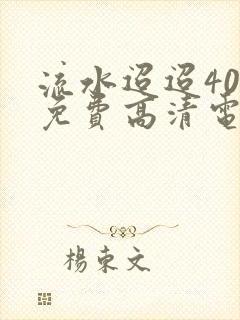 流水迢迢40
免費高清電
楊束文